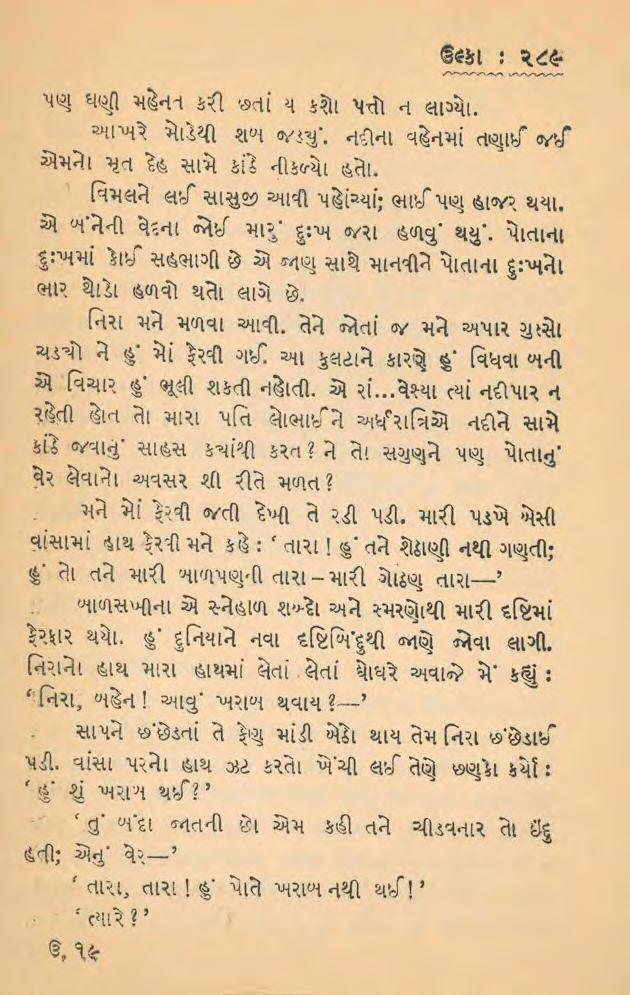 ઉલ્કા : ૨૮૯
પણ ઘણી મહેનત કરી છતાં ય કશો પત્તો ન લાગ્યો.
આખરે મોડેથી શબ જડ્યું. નદીના વહેનમાં તણાઈ જઈ
એમનો મૃત દેહ સામે કાંઠે નીકળ્યો હતો.
વિમલને લઈ સાસુજી આવી પહોંચ્યાં; ભાઈ પણ હાજર થયા.
એ બંનેની વેદના જોઈ મારું દુઃખ જરા હળવું થયું. પોતાના
દુઃખમાં કોઈ સહભાગી છે એ જાણ સાથે માનવીને પોતાના દુઃખનો
ભાર થોડો હળવો થતો લાગે છે.
નિરા મને મળવા આવી. તેને જોતાં જ મને અપાર ગુસ્સો
ચડ્યો ને હું મોં ફેરવી ગઈ. આ કુલટાને કારણે હું વિધવા બની
એ વિચાર હું ભૂલી શકતી નહોતી. એ રાં...વેશ્યા ત્યાં નદીપાર ન
રહેતી હોત તો મારા પતિ લોભાઈને અર્ધરાત્રિએ નદીને સામે
કાંઠે જવાનું સાહસ ક્યાંથી કરત? ને તો સગુણને પણ પોતાનું
વેર લેવાનો અવસર શી રીતે મળત?
મને મોં ફેરવી જતી દેખી તે રડી પડી. મારી પડખે બેસી
વાંસામાં હાથ ફેરવી મને કહે : ‘ તારા ! હું તને શેઠાણી નથી ગણતી;
હું તો તને મારી બાળપણની તારા – મારી ગોઠણ તારા—’
બાળસખીના એ સ્નેહાળ શબ્દો અને સ્મરણોથી મારી દૃષ્ટિમાં
ફેરફાર થયો. હું દુનિયાને નવા દૃષ્ટિબિંદુથી જાણે જોવા લાગી.
નિરાનો હાથ મારા હાથમાં લેતાં લેતાં ઘોઘરે અવાજે મેં કહ્યું :
‘ નિરા, બહેન ! આવું ખરાબ થવાય ?—’
સાપને છંછેડતાં તે ફેણ માંડી બેઠો થાય તેમ નિરા છંછેડાઈ
પડી. વાંસા પરનો હાથ ઝટ કરતો ખેંચી લઈ તેણે છણકો કર્યો :
‘ હું શું ખરાબ થઈ?’
‘ તું બંદા જાતની છો એમ કહી તને ચીડવનાર તો ઇંદુ
હતી; એનું વેર—’
‘ તારા, તારા ! હું પોતે ખરાબ નથી થઈ ! ’
‘ ત્યારે ? ’
ઉ. ૧૯